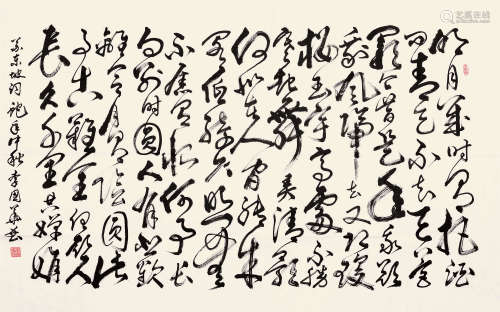 明月幾时有把酒
问青天不知天上宫
闕今昔是何年我欲
乘风歸去又恐瓊
楼玉宇高處不勝
寒起舞弄清影
何似在人间转朱
阁低绮户照无眠
不应有恨何事长
向别时圆人有悲歡
離合月有陰晴圆缺
此事古難全但愿人
長久千里共嬋娟
苏东坡词 中秋 李国华书